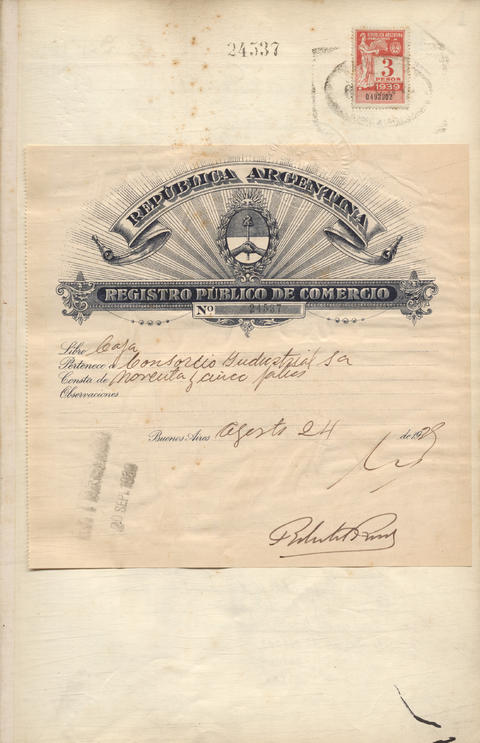 24537
REPUBLICA ARGENTINA
3
PESOS
1939
0492902
REPÚBLICA ARGENTINA
REGISTRO PÚBLICO DE COMERCIO
Nº 24537
Libro Caja
Pertenece a Consorcio Industrial SA
Consta de Noventa y cinco folios
Observaciones
Buenos Aires Agosto 24 de 1939
20 SEP. 1939